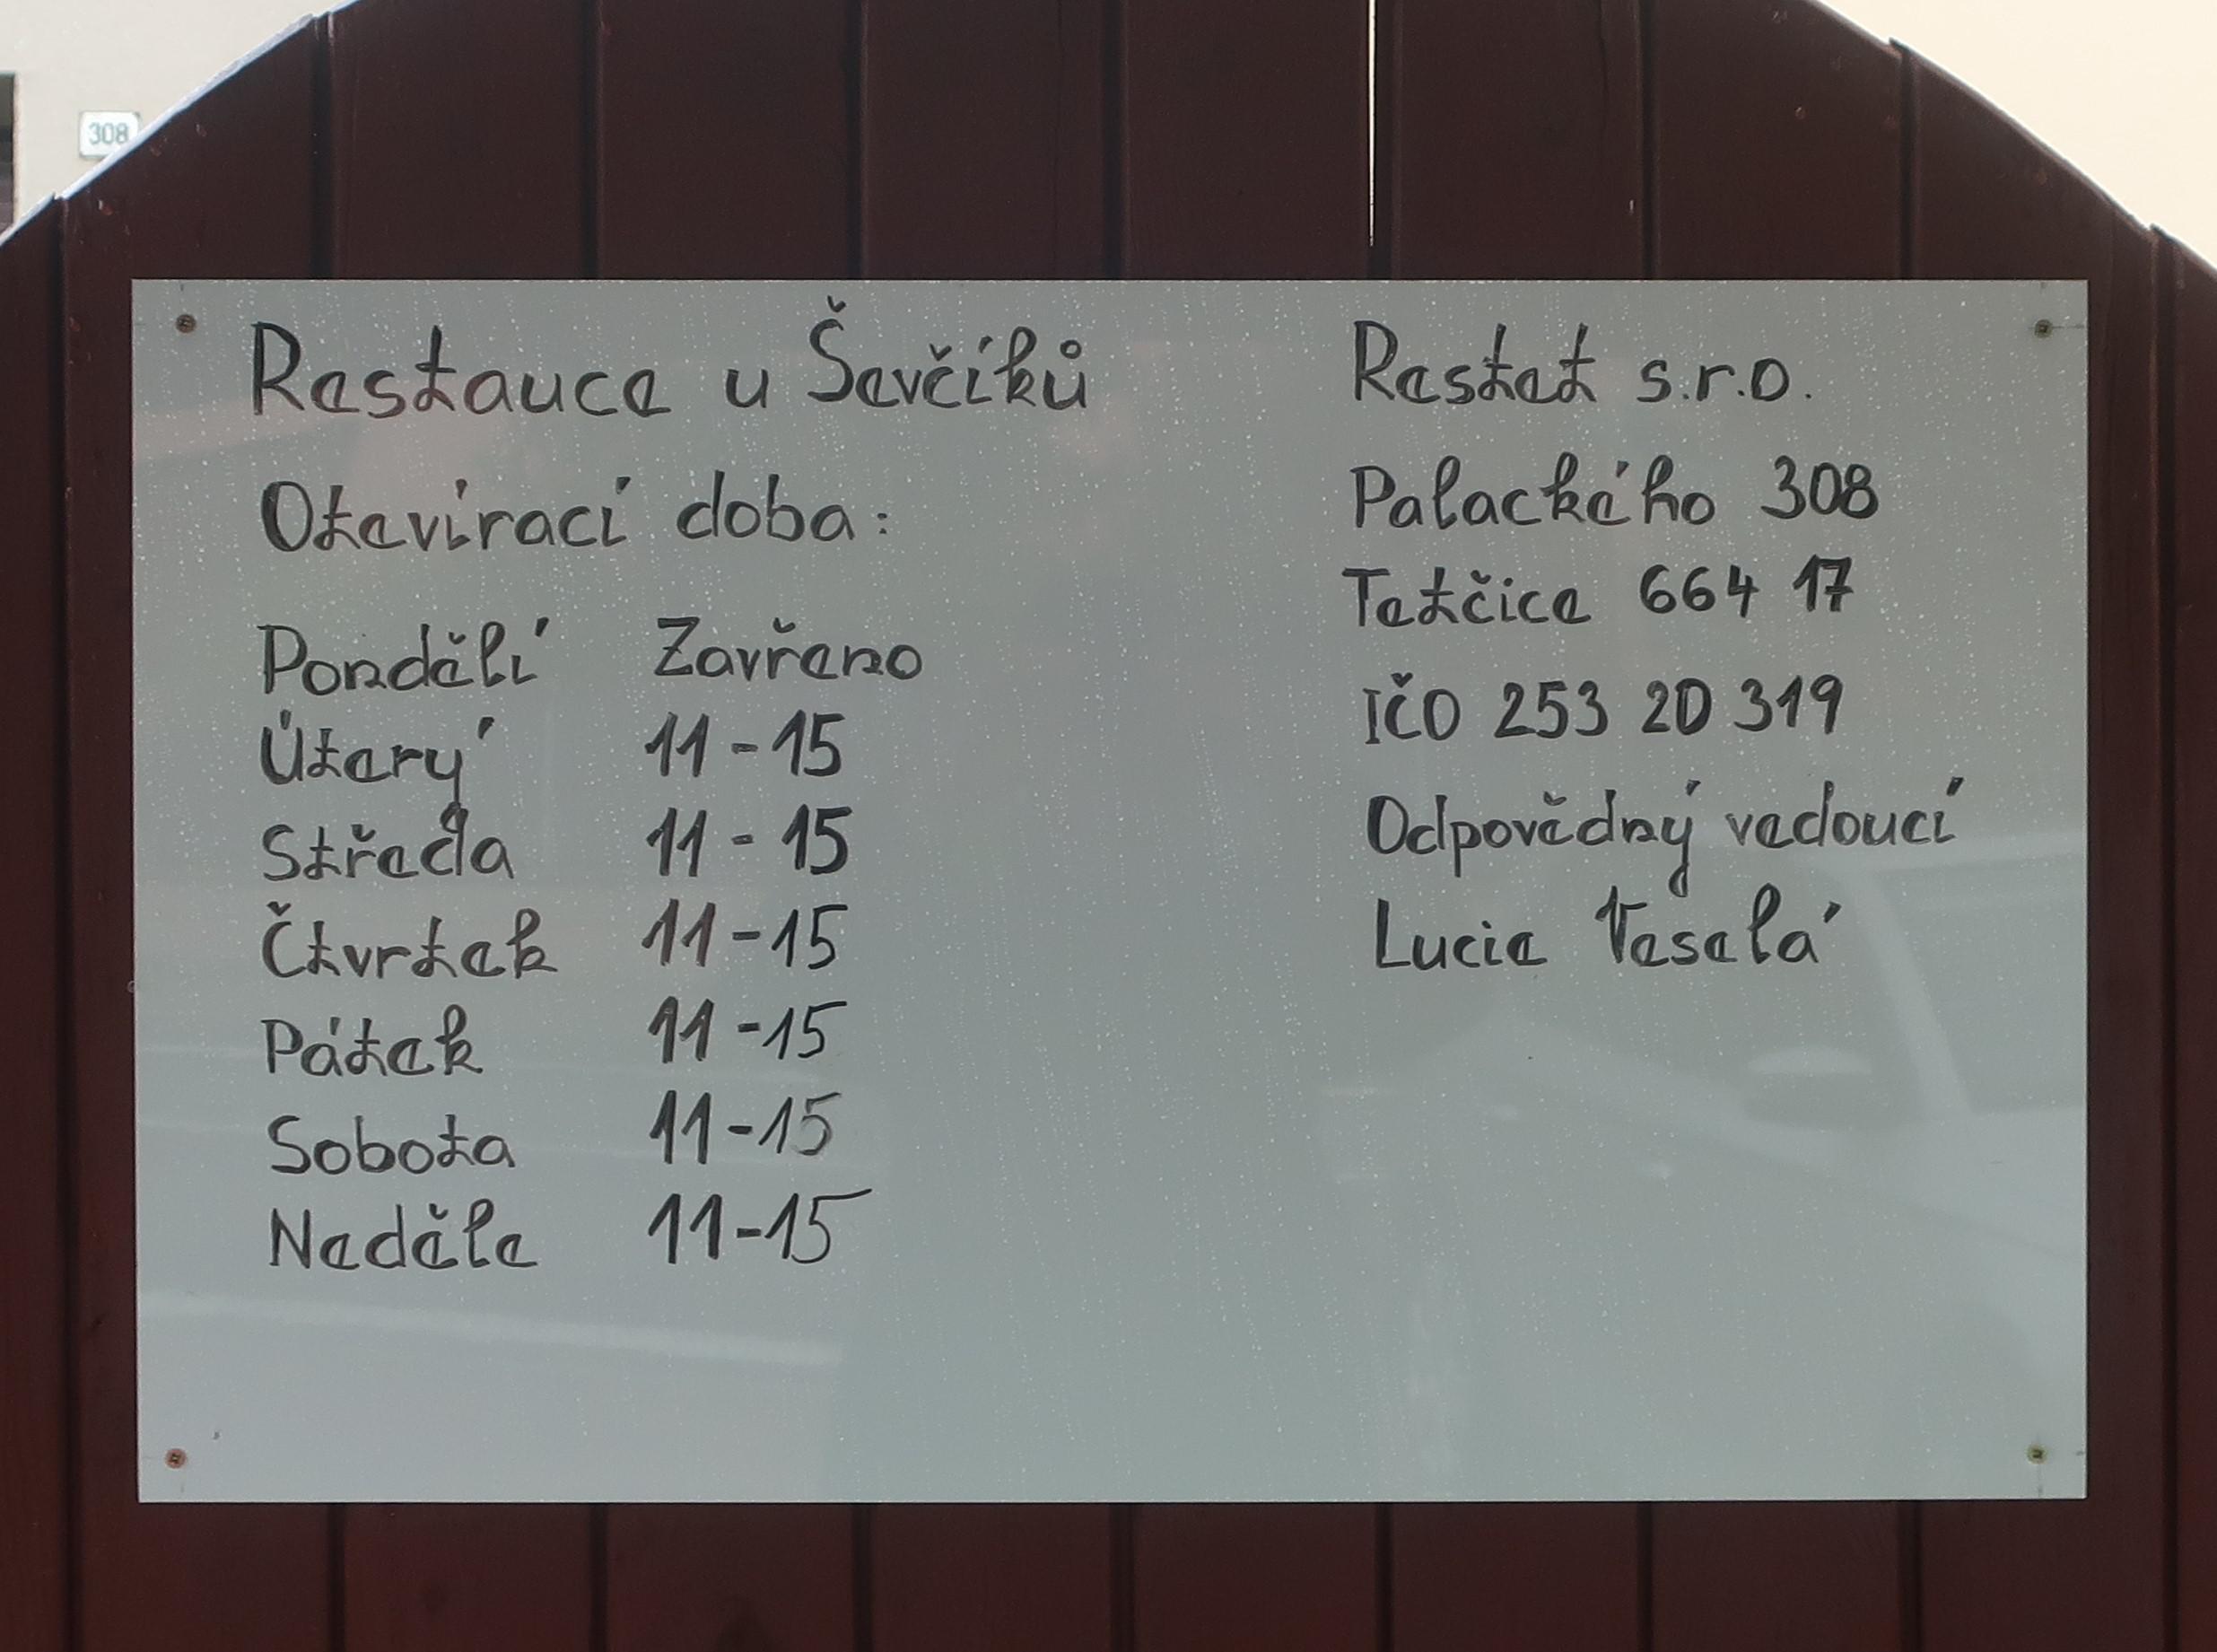 308
Restauce u Ševčíků
Otevírací doba:
Pondělí Zavřeno
Úterý 11-15
Středa 11-15
Čtvrtek 11-15
Pátek 11-15
Sobota 11-15
Neděle 11-15
Restet s.r.o.
Palackého 308
Tetčice 664 17
IČO 253 20 319
Odpovědný vedoucí
Lucie Veselá